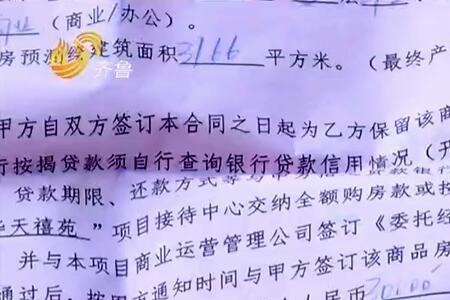 （商业/办公）。
房预测绘建筑面积31.66平方米。（最终产
齐鲁
甲方自双方签订本合同之日起为乙方保留该商
行按揭贷款须自行查询银行贷款信用情况（开
贷款期限、还款方式等
天禧苑 ”项目接待中心交纳全额购房款或按
并与本项目商业运营管理公司签订《委托经
通过后，按 通知时间与甲方签订该商品房
民币